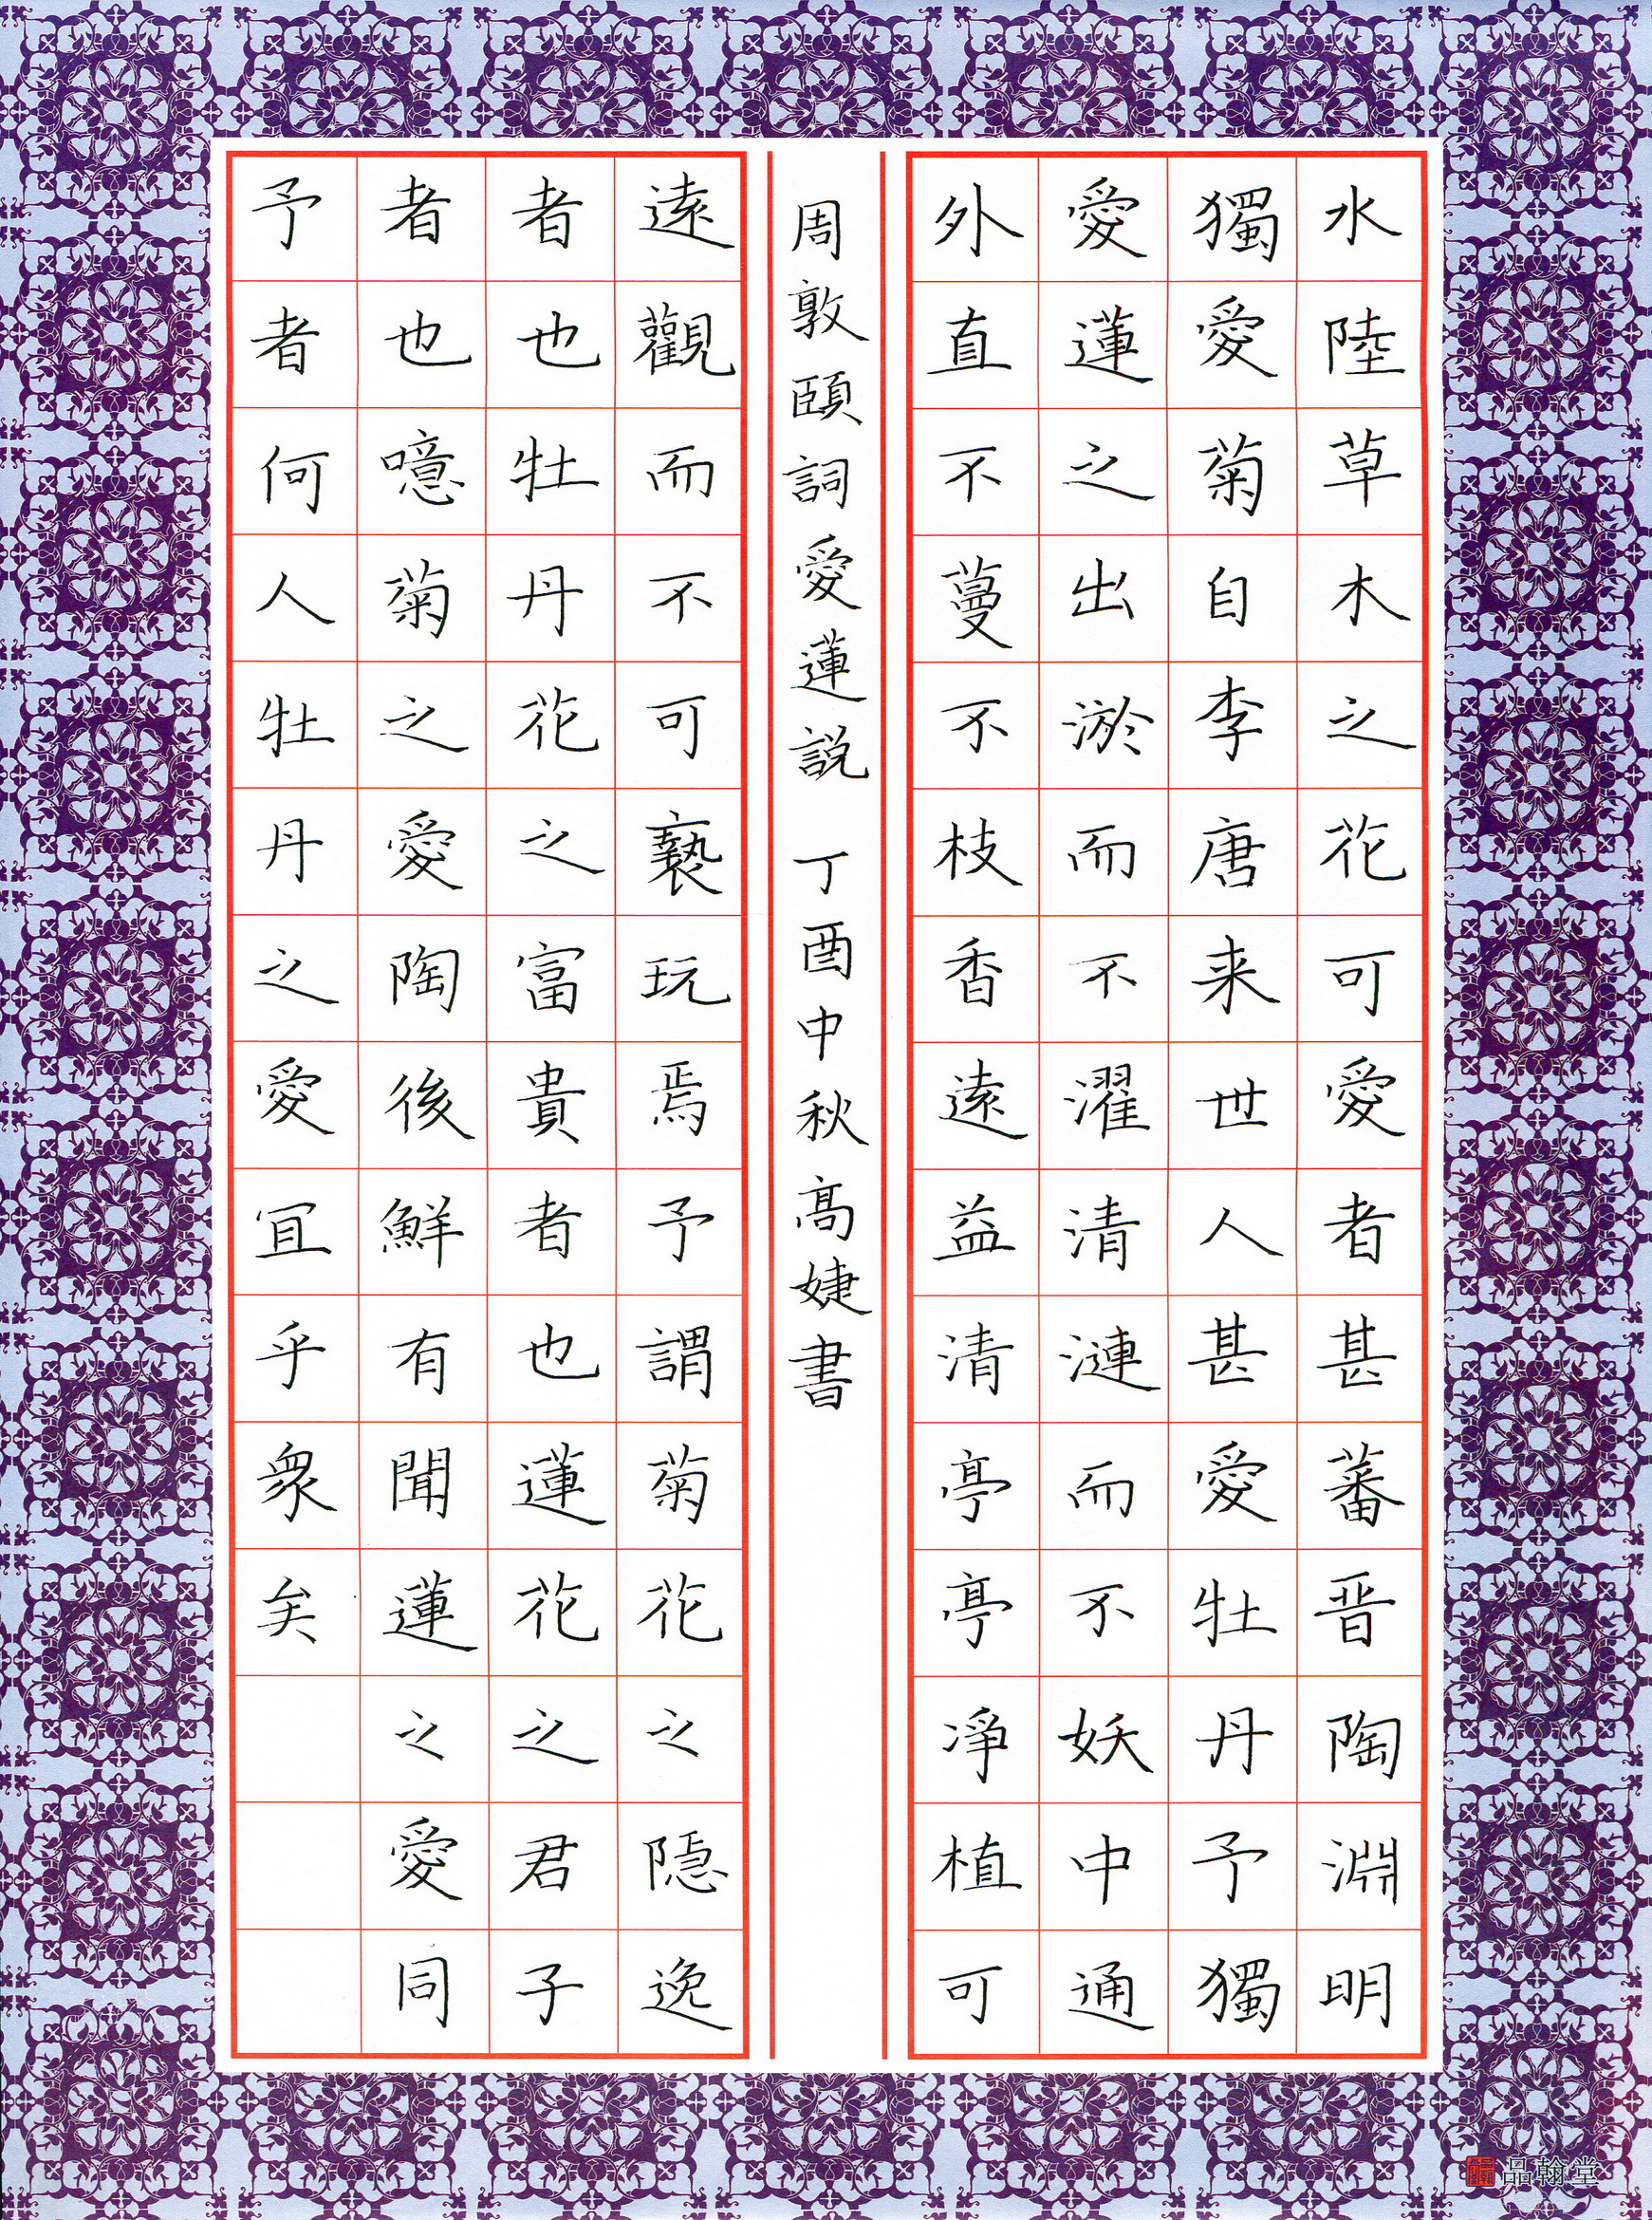 水陸草木之花可愛者甚蕃晋陶淵明
獨愛菊自李唐来世人甚愛牡丹予獨
愛蓮之出淤而不濯清漣而不妖中通
外直不蔓不枝香遠益清亭亭凈植可
周敦頤詞愛蓮説 丁酉中秋高婕書
遠觀而不可褻玩焉予謂菊花之隠逸
者也牡丹花之富貴者也蓮花之君子
者也噫菊之愛陶後鮮有聞蓮之愛同
予者何人牡丹之愛宜乎眾矣
品翰堂